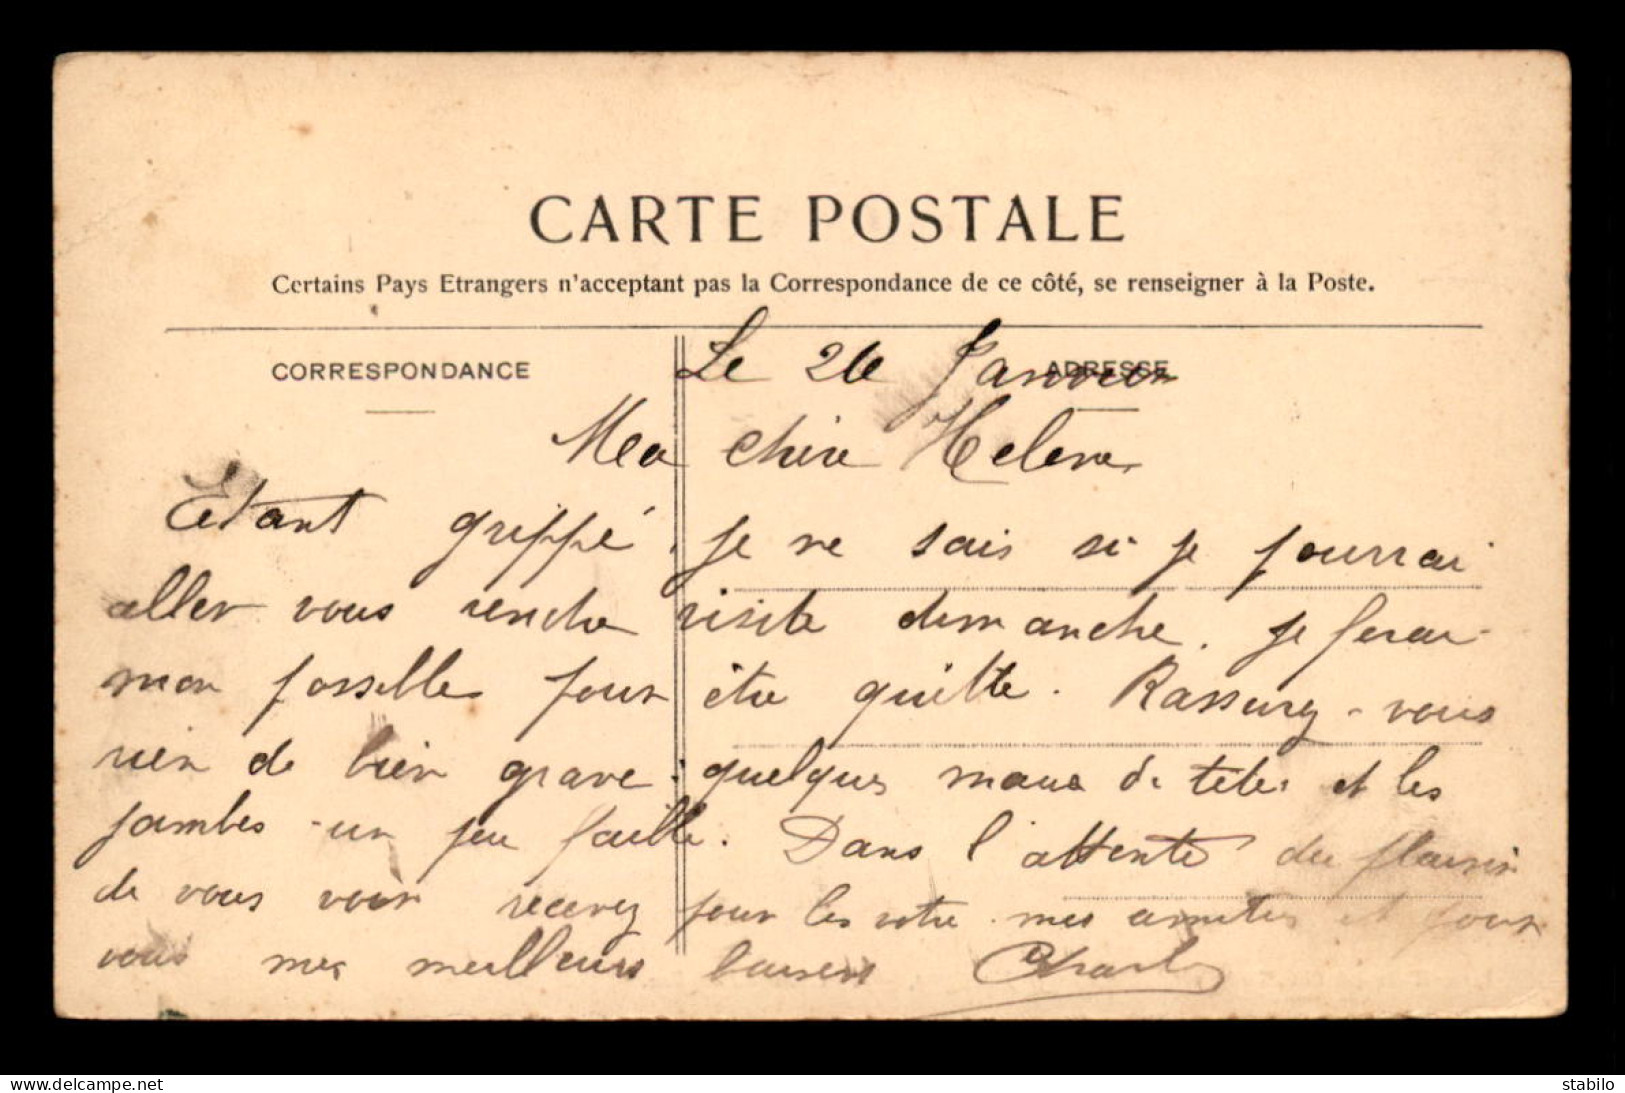 CARTE POSTALE
Certains Pays Etrangers n'acceptant pas la Correspondance de ce côté, se renseigner à la Poste.
CORRESPONDANCE
ADRESSE
Le 26 Janvier
Ma chère Helene
Etant grippé, je ne sais si je pourrai
aller vous rendre visite dimanche. Je ferai
mon possible pour être quitte. Rassurez-vous
rien de bien grave, quelques maux de têtes et les
jambes un peu faible. Dans l'attente du plaisir
de vous voir recevez pour les votre mes amities et pour
vous mes meilleurs baisers Charles
www.delcampe.net
stabilo